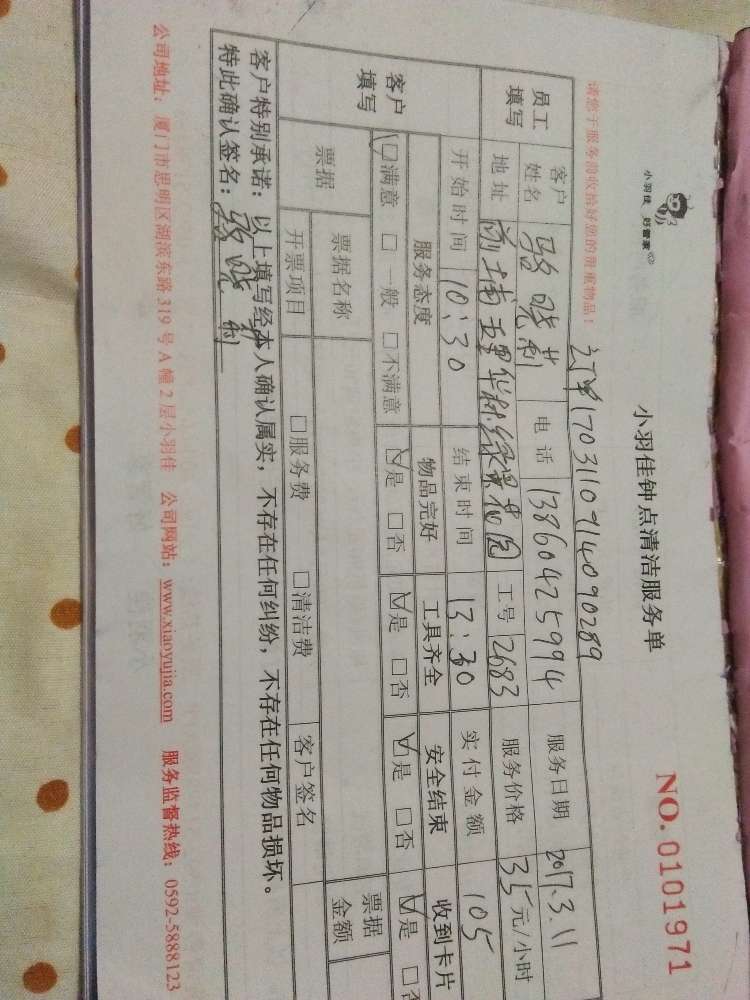 小羽佳 好管家
小羽佳钟点清洁服务单
NO.0101971
请您于服务前收拾好您的贵重物品！
订单1703110914090289
员工填写 客户姓名 骆晓莉 电话 13860425994 服务日期 2017.3.11
地址 前埔 华林绿景花园 工号 2683 服务价格 35元/小时
客户填写 开始时间 10:30 结束时间 13:30 实付金额 105
服务态度 物品完好 工具齐全 安全结束 收到卡片
☑满意 □一般 □不满意 ☑是 □否 ☑是 □否 ☑是 □否 ☑是 □否
票据 票据名称 票据金额
开票项目 □服务费 □清洁费 客户签名
客户特别承诺：以上填写经本人确认属实，不存在任何纠纷，不存在任何物品损坏。
特此确认签名：骆晓莉
公司地址：厦门市思明区湖滨东路319号A幢2层小羽佳 公司网站：www.xiaoyujia.com 服务监督热线：0592-5888123